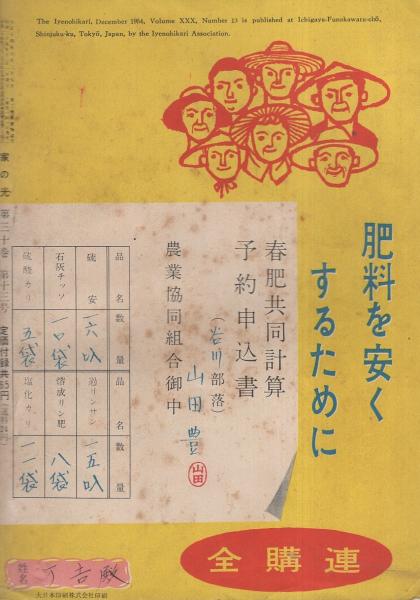 The Iyenohikari, December 1954, Volume XXX, Number 13 is published at Ichigaya-Funakawara-chō,
Shinjuku-ku, Tokyō, Japan, by the Iyenohikari Association.
肥料を安く
するために
春肥共同計算
予約申込書
(谷川部落)
山田豊
山田
農業協同組合御中
品名 数量
硫安 一六叺
石灰チッソ 一〇袋
硫酸カリ 五袋
品名 数量
過リンサン 一五叺
熔成リン肥 八袋
塩化カリ 一一袋
全購連
家の光 第三十巻 第十三号 定価付録共
姓名 丁吉殿
大日本印刷株式会社印刷